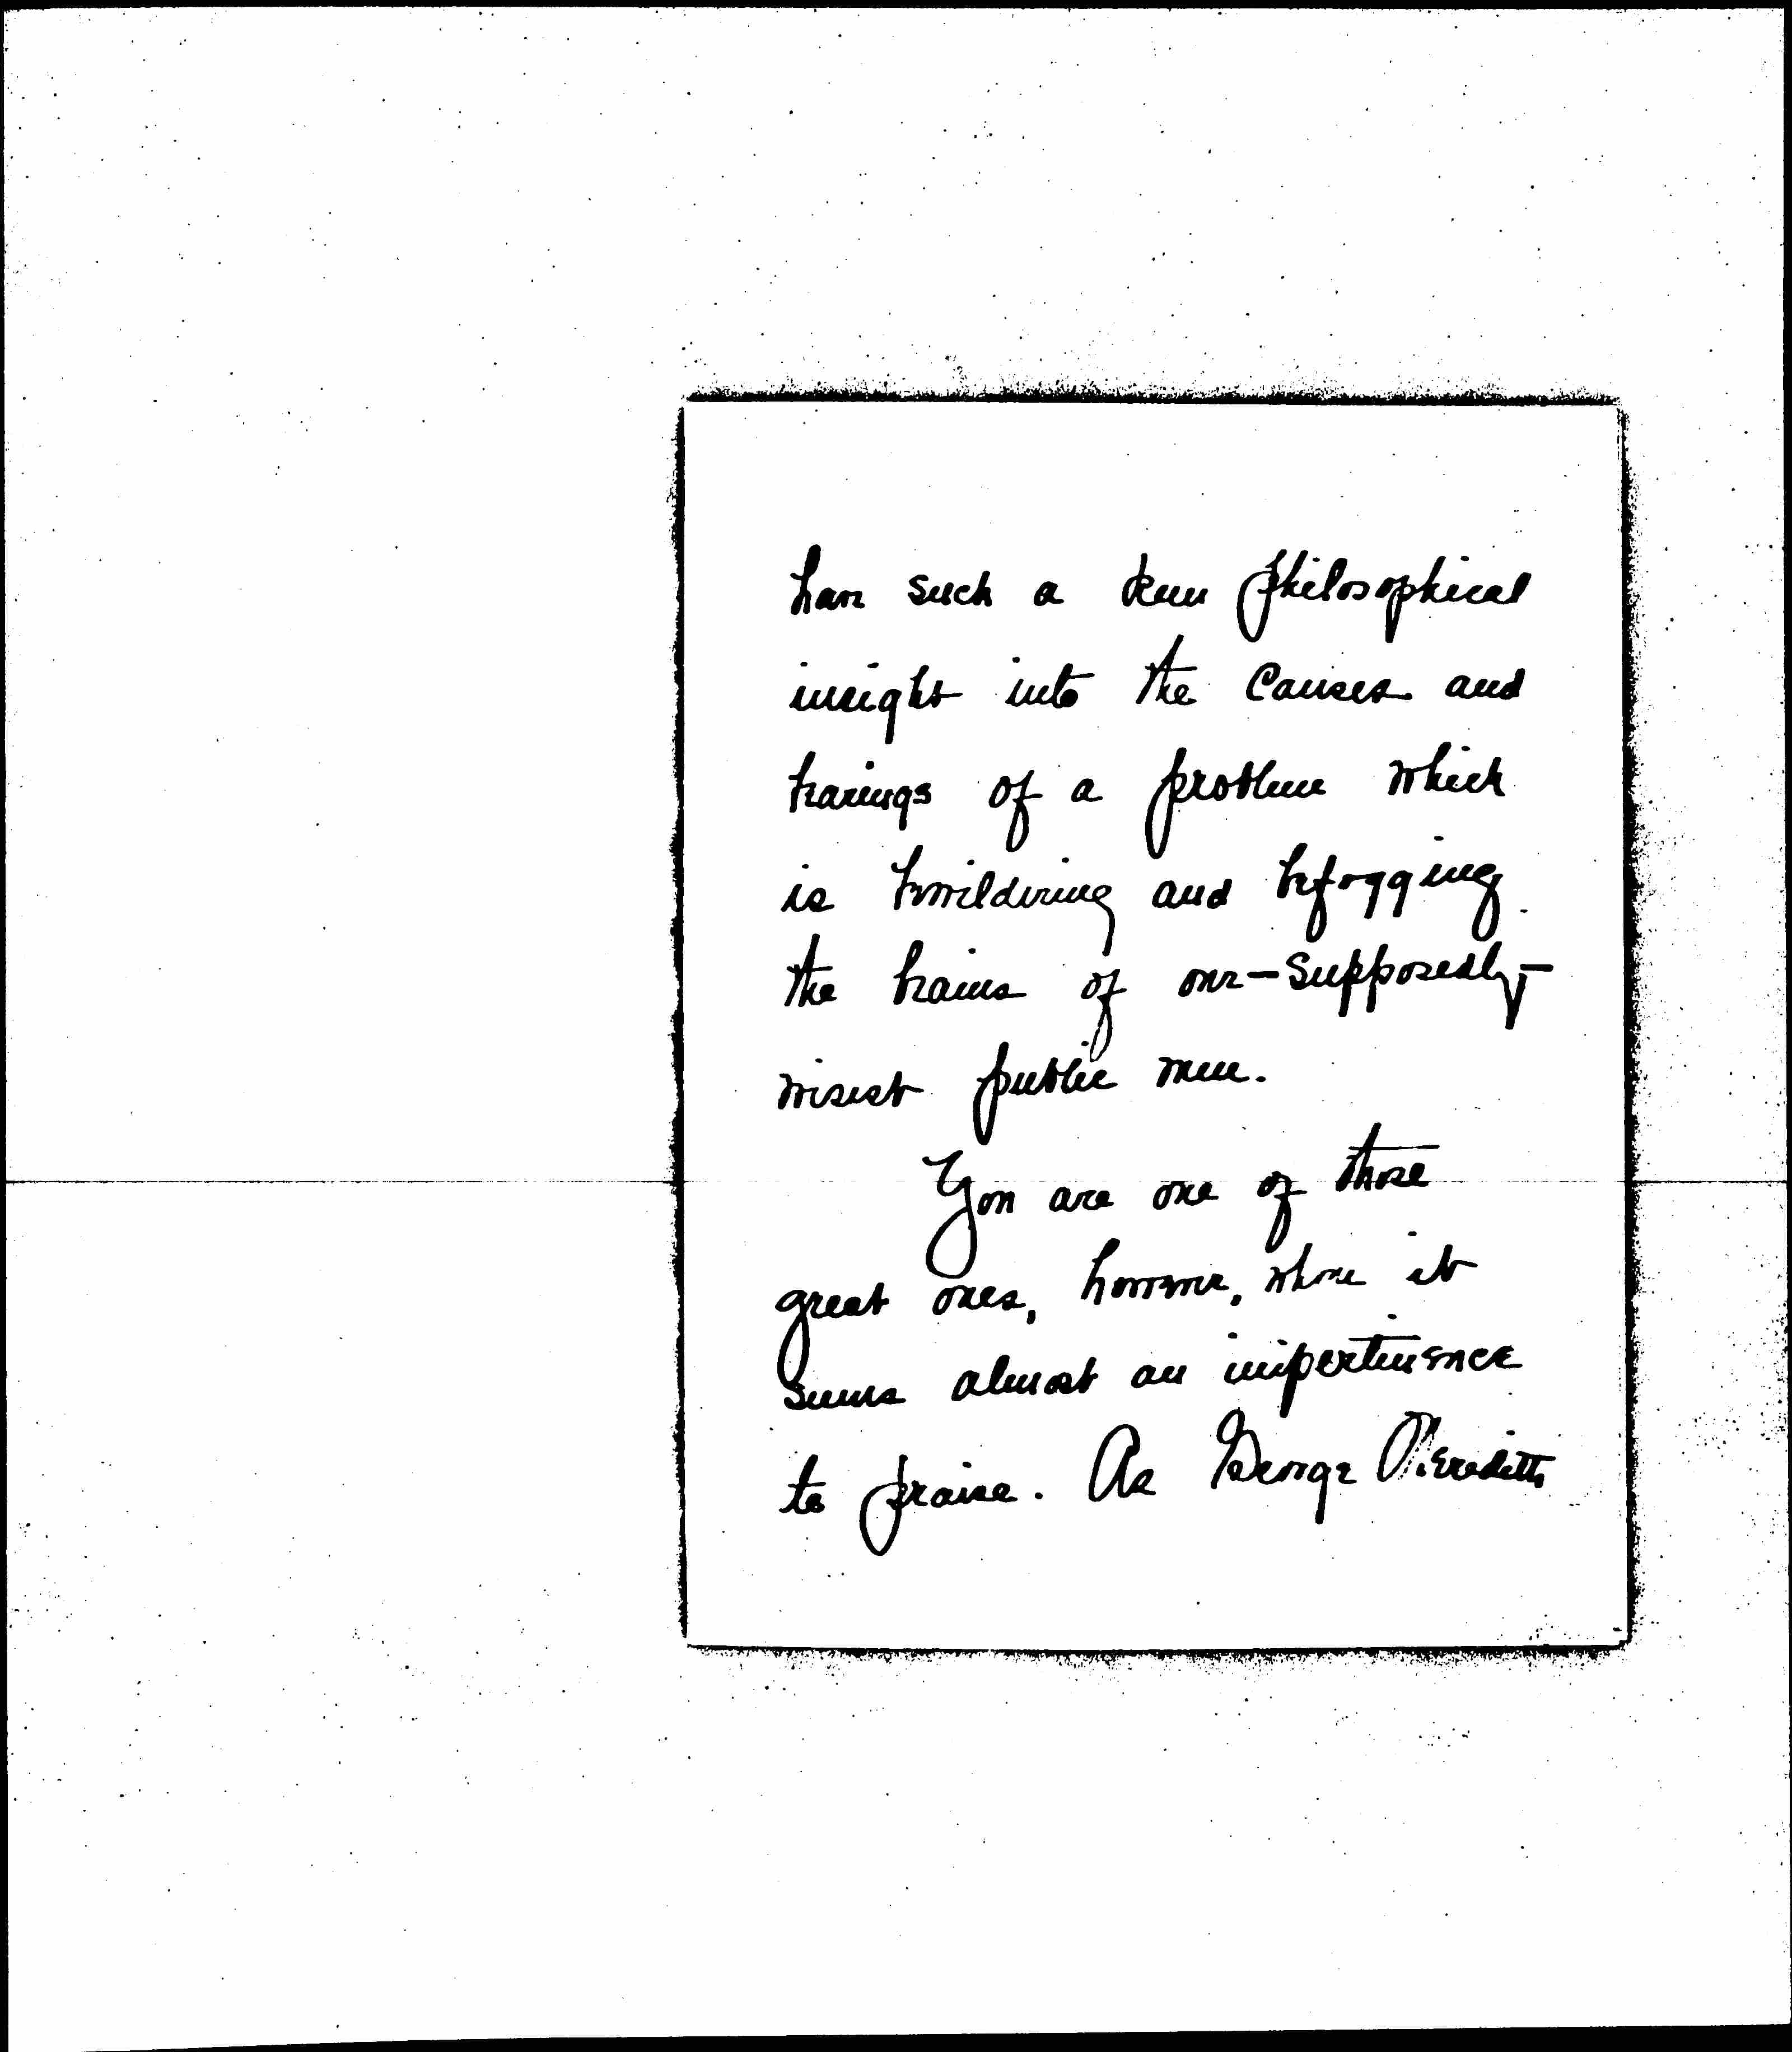 have such a keen philosophical
insight into the causes and
bearings of a problem which
is bewildering and befogging
the brains of our-supposedly-
wisest public men.
You are one of those
great ones, however, whom it
seems almost an impertinence
to praise. As George Meredith